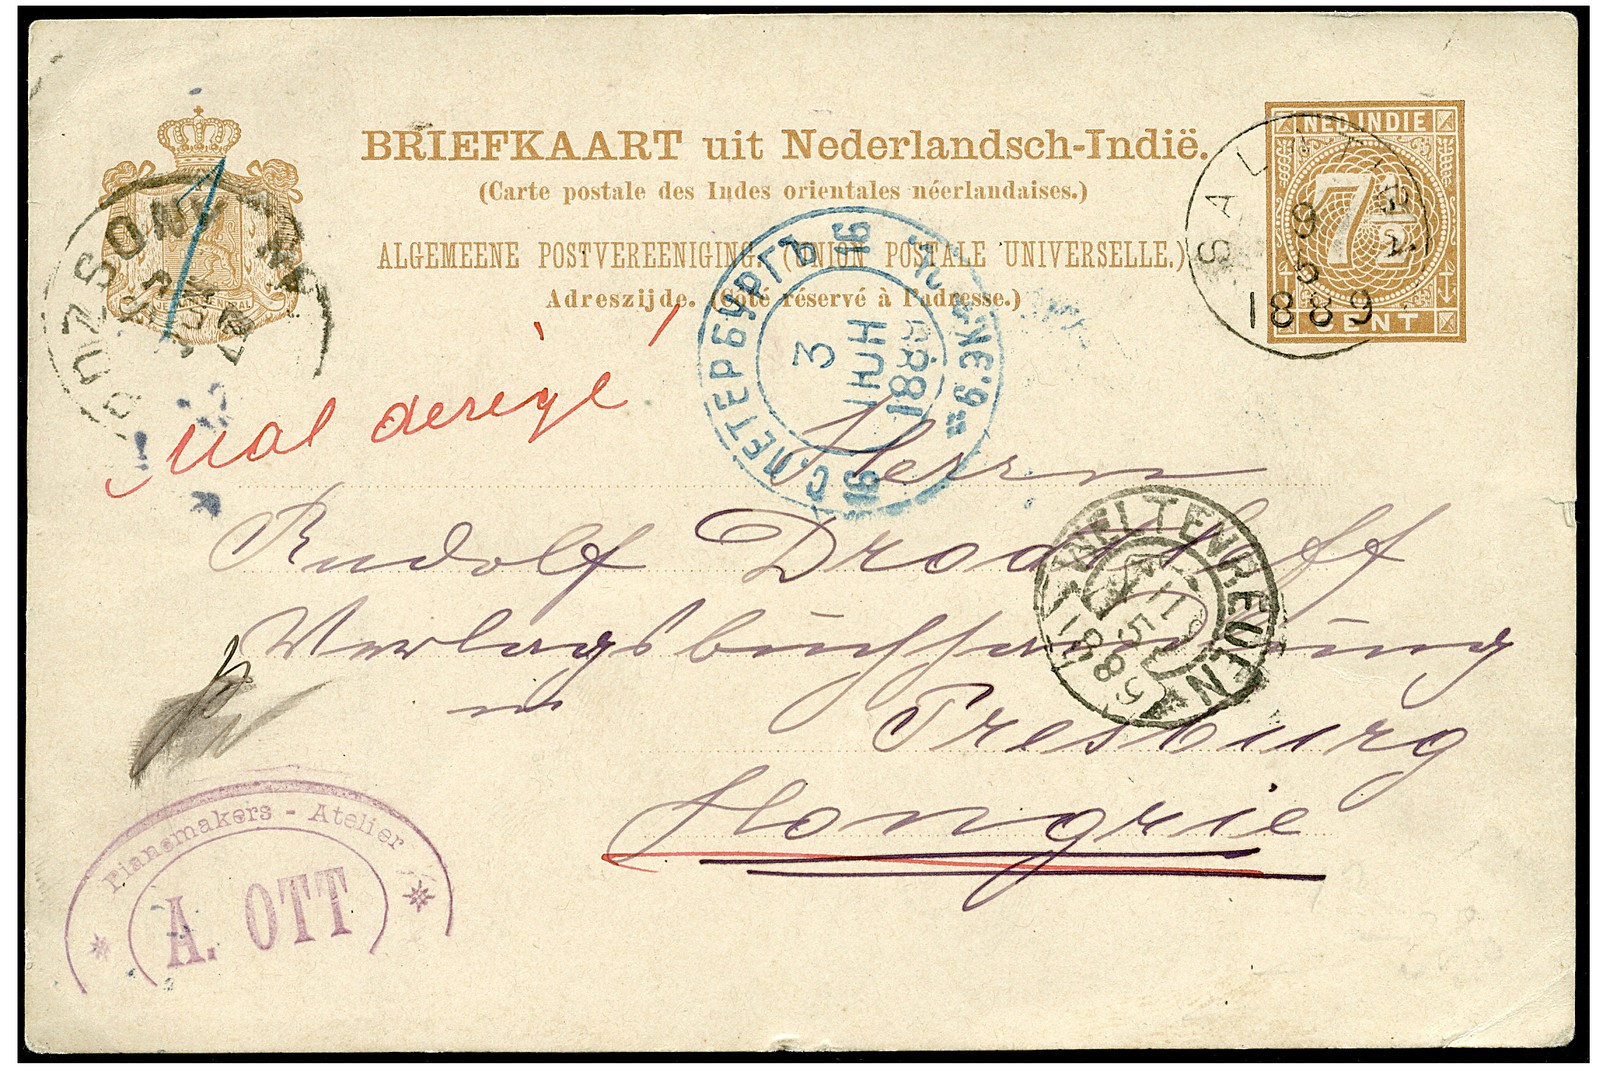 BRIEFKAART uit Nederlandsch-Indië.
(Carte postale des Indes orientales néerlandaises.)
ALGEMEENE POSTVEREENIGING (UNION POSTALE UNIVERSELLE.)
Adreszijde. (Côté réservé à l'adresse.)
NED. INDIE
7½
CENT
SALATIGA
9
5
1889
POZSONY
1
С. ПЕТЕРБУРГЪ
3
ІЮН
1889
16
16
Mal derigé
Herrn
Rudolf Drodtleff
Verlagsbuchhandlung
in Presburg
Hongrie
WELTEVREDEN
11
5
1889
Pianomakers - Atelier
A. OTT